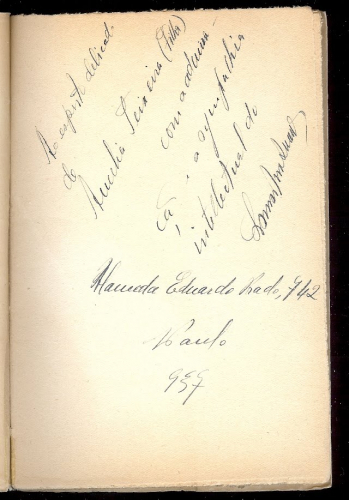 Ao espirito delicado
de
Amelia Teixeira (Filha)
com a admira-
ção e a sympathia
intellectual de
Alameda Eduardo Prado, 742
S. Paulo
937